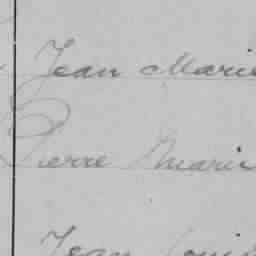 Jean Marie
Pierre Marie
Jean Louis